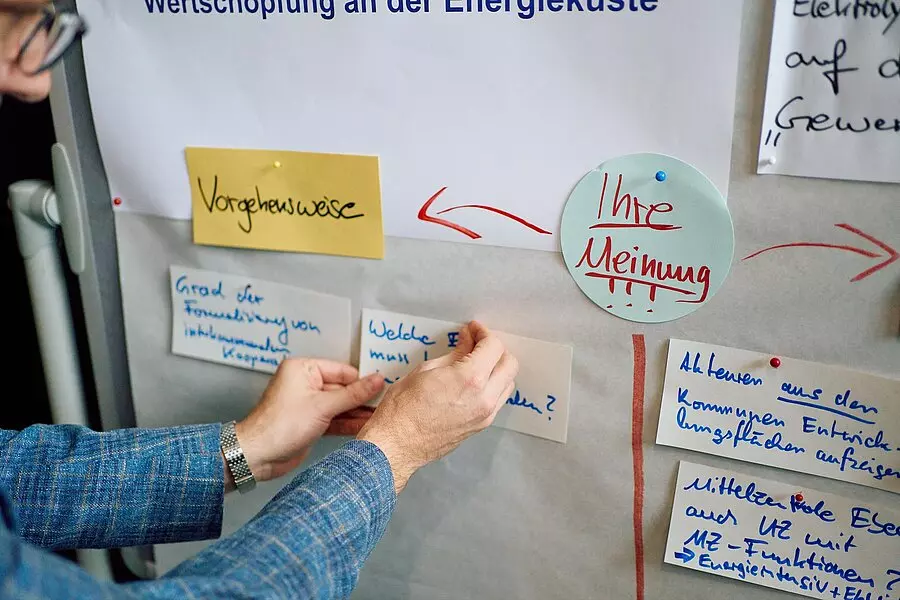 Wertschöpfung an der Energieküste
Elektroly
auf d
"Gewer
Vorgehensweise
Ihre
Meinung
!!!
Grad der
Formalisierung von
interkommunalen
Kooperat
Welche E
muss i
den?
Akteuren aus den
Kommunen Entwick-
lungsflächen aufzeigen
Mittelzentrale Ebe
auch UZ mit
MZ-Funktionen?
→ Energieintensiv + Ebl